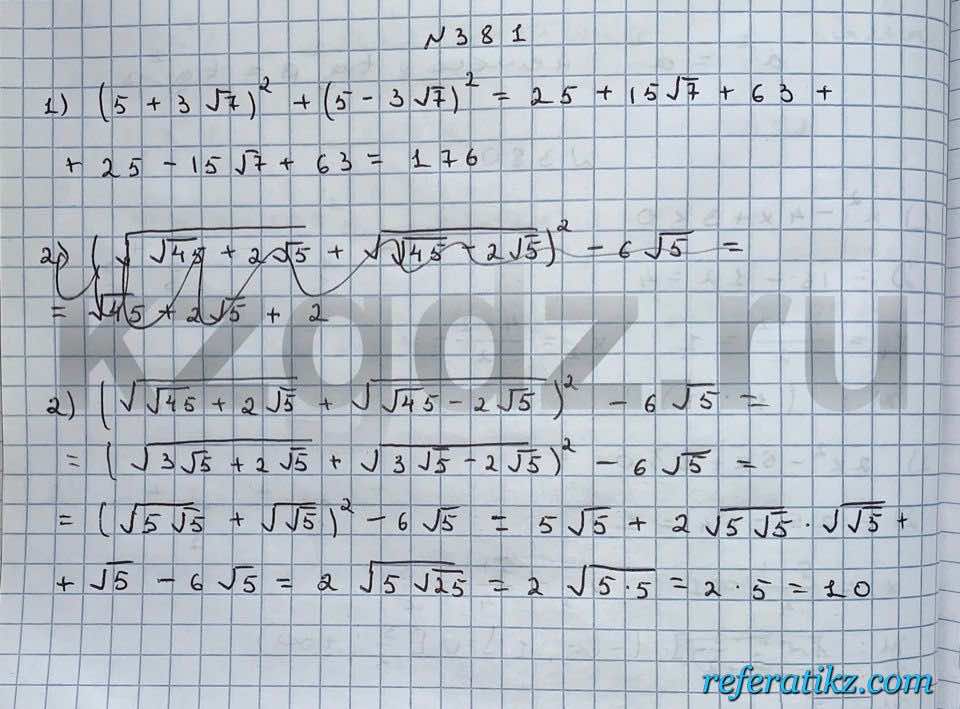 №381
1) (5 + 3√7)² + (5 - 3√7)² = 25 + 15√7 + 63 +
+ 25 - 15√7 + 63 = 176
2) (√(√45 + 2√5) + √(√45 - 2√5))² - 6√5 =
= √45 + 2√5 + 2
2) (√(√45 + 2√5) + √(√45 - 2√5))² - 6√5 =
= (√(3√5 + 2√5) + √(3√5 - 2√5))² - 6√5 =
= (√(5√5) + √√5)² - 6√5 = 5√5 + 2√(5√5) · √√5 +
+ √5 - 6√5 = 2√(5√25) = 2√(5·5) = 2·5 = 10
kzgdz.ru
referatikz.com